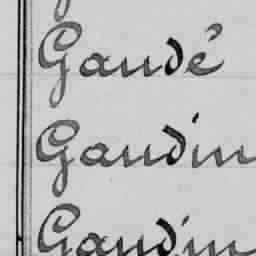 Gaudé
Gaudin
Gaudin